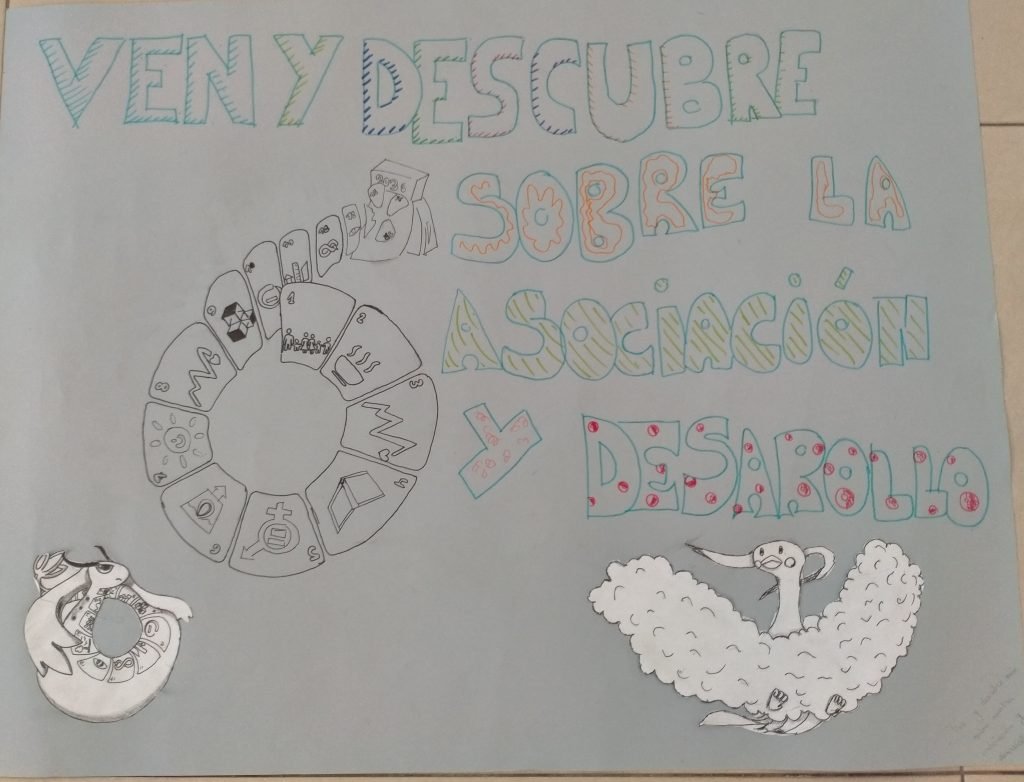 VEN Y DESCUBRE
SOBRE LA
ASOCIACIÓN
Y DESAROLLO
1
2
3
4
5
6
8
9